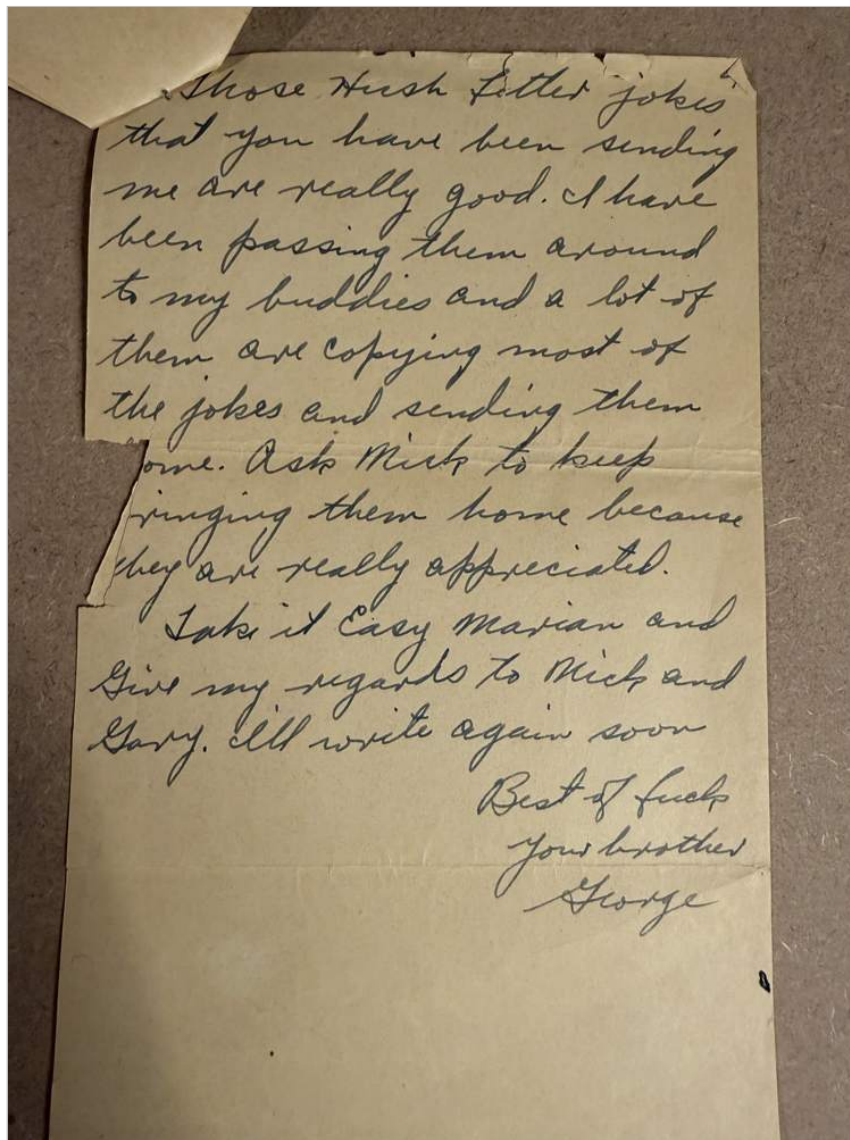 Those Hush Letter jokes
that you have been sending
me are really good. I have
been passing them around
to my buddies and a lot of
them are copying most of
the jokes and sending them
ome. Ask Mick to keep
ringing them home because
they are really appreciated.
Take it Easy Marian and
Give my regards to Mick and
Gary. I'll write again soon
Best of luck
your brother
George